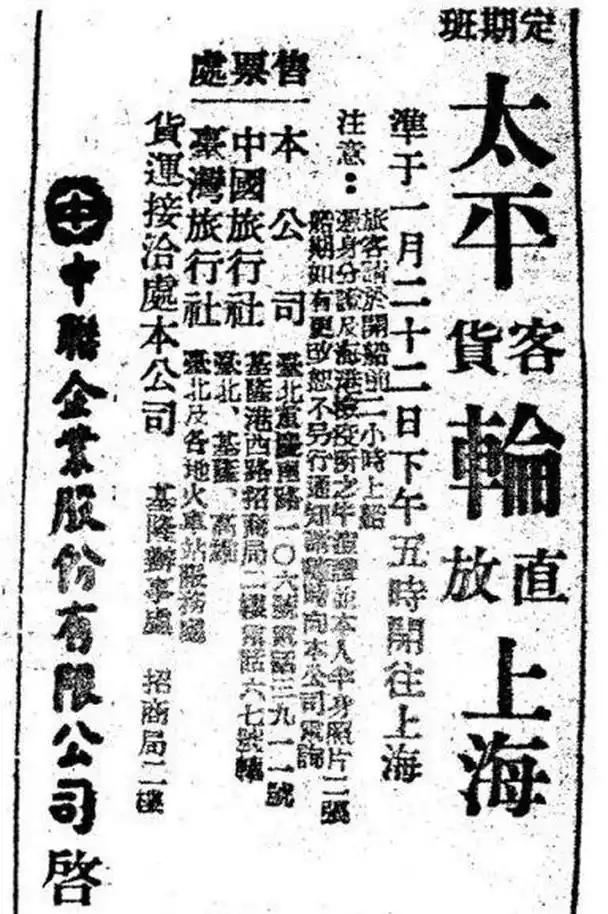 定期班
太平客貨輪直放上海
準于一月二十二日下午五時開往上海
注意：旅客請於開船前二小時上船
身分證及海港檢疫所之牛痘證並本人半身照片二張
船期如有更改恕不另行通知請隨時向本公司電詢
售票處
本公司 臺北重慶南路一〇六號電話三九一一號
基隆港西路招商局二樓電話六七號轉
中國旅行社 臺北、基隆、高雄
臺灣旅行社 臺北及各地火車站服務處
貨運接洽處本公司 基隆辦事處 招商局二樓
中聯企業股份有限公司啓